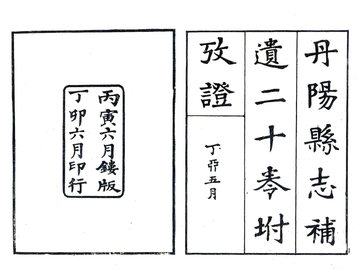 丹陽縣志補
遺二十卷坿
攷證
丁卯五月
丙寅六月鏤版
丁卯六月印行